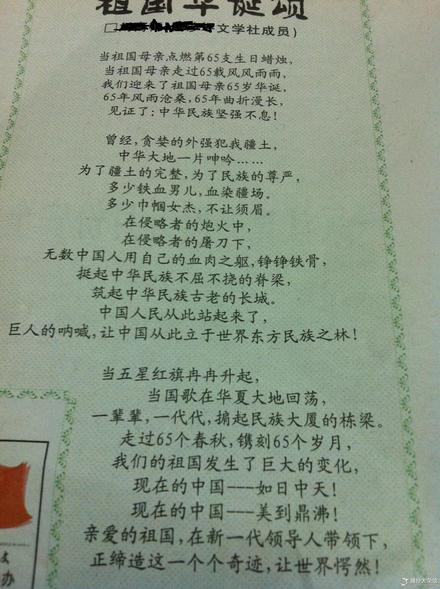 祖国华诞颂
文学社成员)
当祖国母亲点燃第65支生日蜡烛,
当祖国母亲走过65载风风雨雨,
我们迎来了祖国母亲65岁华诞,
65年风雨沧桑,65年曲折漫长,
见证了:中华民族坚强不息!
曾经,贪婪的外强犯我疆土,
中华大地一片呻吟……
为了疆土的完整,为了民族的尊严,
多少铁血男儿,血染疆场。
多少巾帼女杰,不让须眉。
在侵略者的炮火中,
在侵略者的屠刀下,
无数中国人用自己的血肉之躯,铮铮铁骨,
挺起中华民族不屈不挠的脊梁,
筑起中华民族古老的长城。
中国人民从此站起来了,
巨人的呐喊,让中国从此立于世界东方民族之林!
当五星红旗冉冉升起,
当国歌在华夏大地回荡,
一辈辈,一代代,掮起民族大厦的栋梁。
走过65个春秋,镌刻65个岁月,
我们的祖国发生了巨大的变化,
现在的中国---如日中天!
现在的中国---美到鼎沸!
亲爱的祖国,在新一代领导人带领下,
正缔造这一个个奇迹,让世界愕然!
办